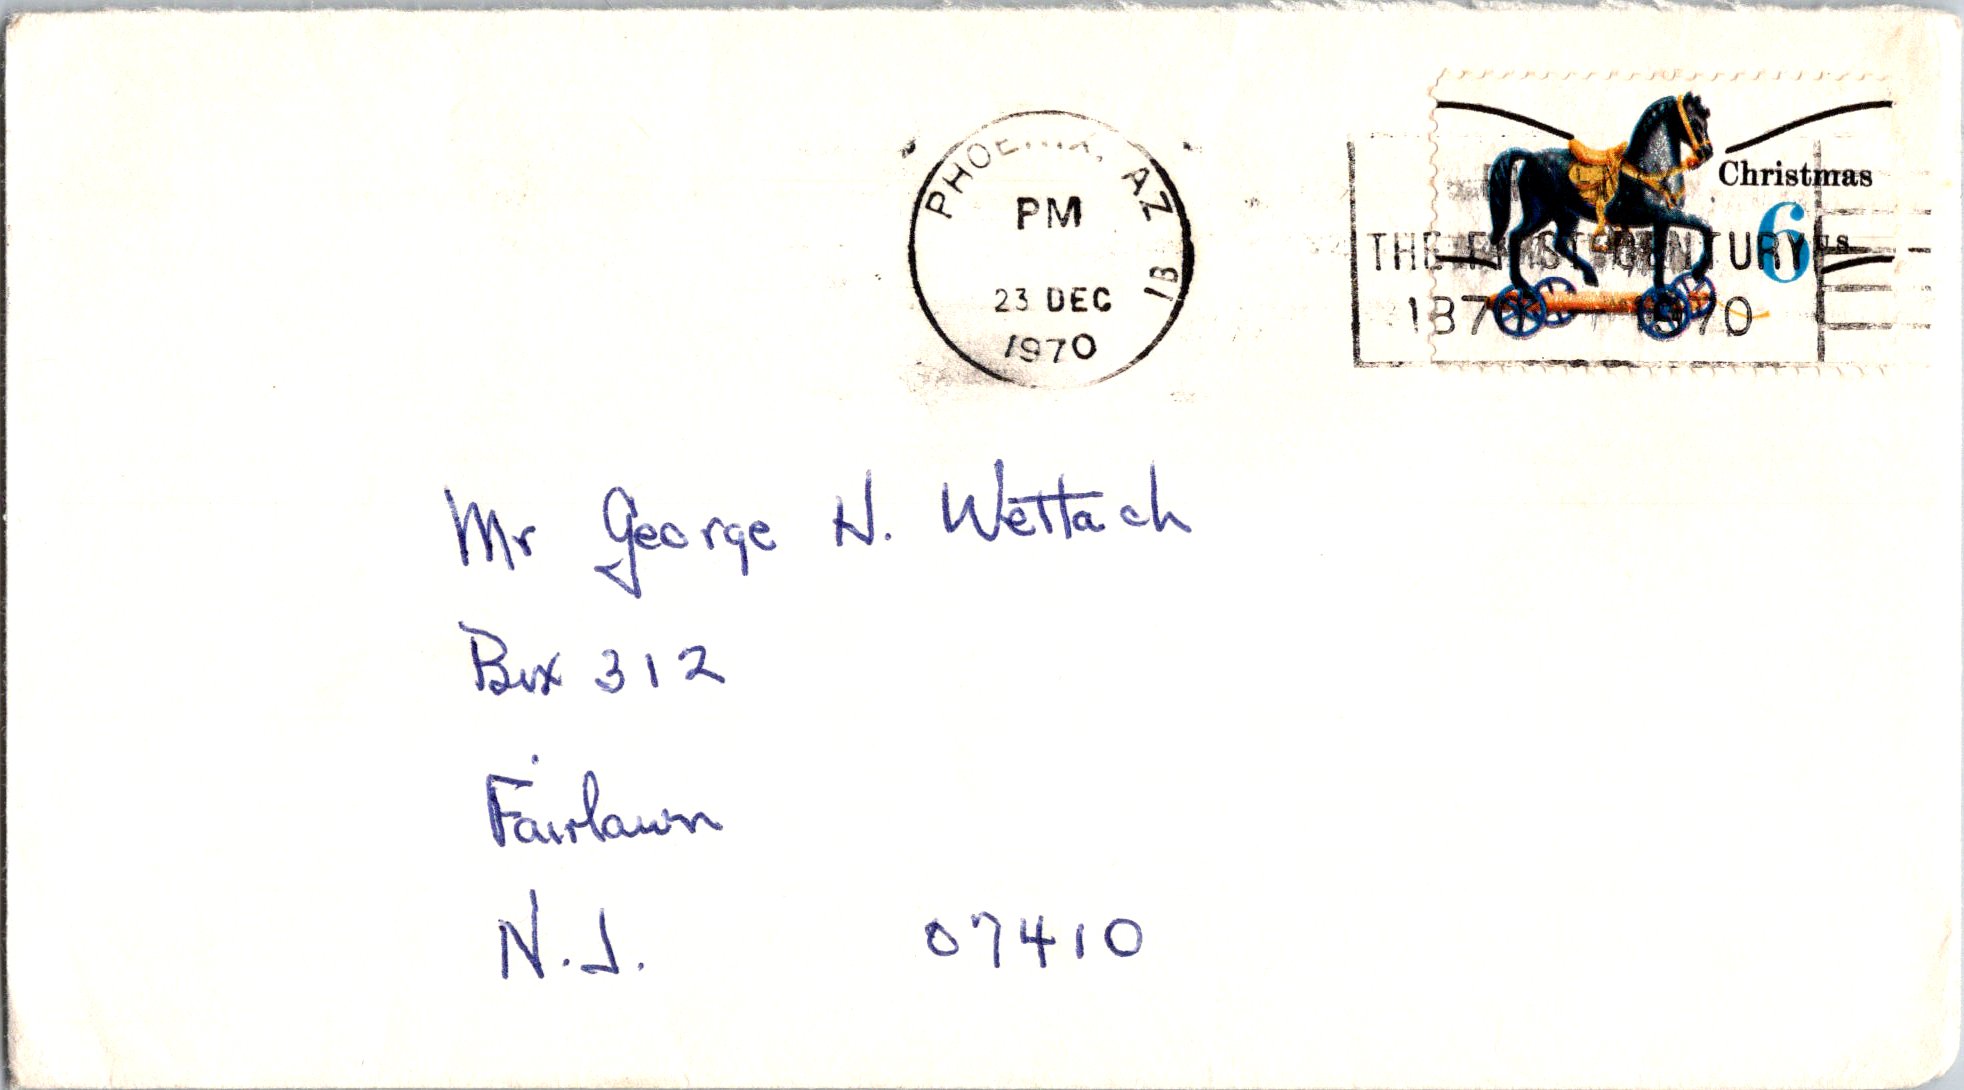 PHOENIX, AZ
PM
1B
23 DEC
1970
Christmas
6
U.S.
THE FIRST CENTURY
1870 1970
Mr George N. Wettach
Box 312
Fairlawn
N.J. 07410